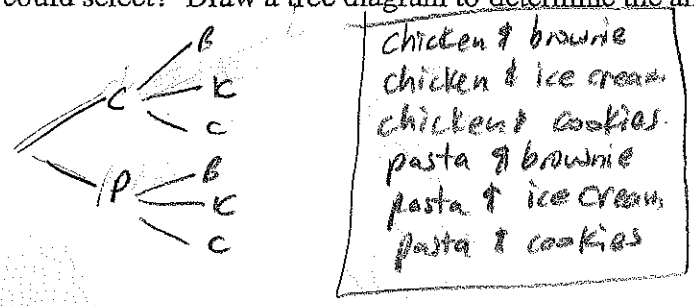 could select? Draw a tree diagram to determine the an
B
C
K
C
B
P
K
C
chicken & brownie
chicken & ice cream
chicken & cookies
pasta & brownie
pasta & ice cream
pasta & cookies